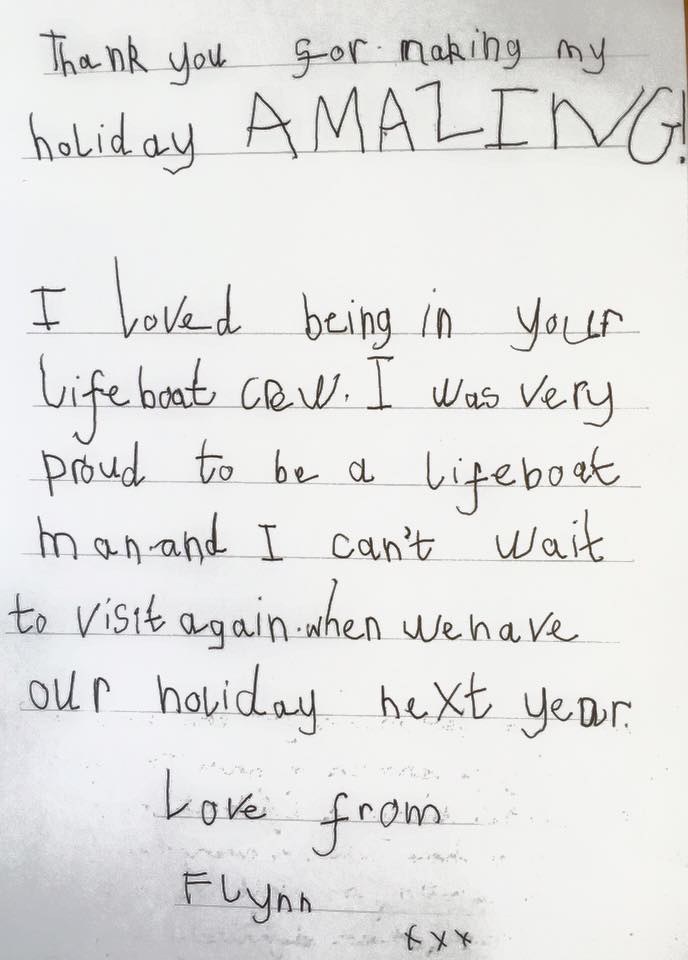 Thank you for making my
holiday AMAZING!
I loved being in your
lifeboat crew. I was very
proud to be a lifeboat
man and I can't wait
to visit again when we have
our holiday next year.
Love from
Flynn
xxx